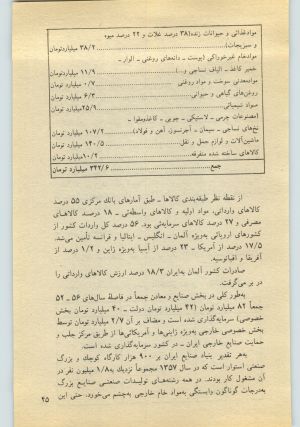 موادغذائی و حیوانات زنده(۳۸ درصد غلات و ۲۲ درصد میوه
و سبزیجات) ۳۸/۲ میلیاردتومان
موادخام غیرخوراکی (پوست - دانه‌های روغنی - الوار -
خمیر کاغذ - الیاف نساجی و...) ۱۱/۹ میلیاردتومان
موادمعدنی سوخت و مواد روغنی ۰/۷ میلیاردتومان
روغن‌های گیاهی و حیوانی ۶/۳ میلیاردتومان
مواد شیمیائی ۲۵/۹ میلیاردتومان
(مصنوعات چرمی - لاستیکی - چوبی - کاغذومقوا -
نخ‌های نساجی - سیمان - آجرنسوز - آهن و فولاد) ۱۰۷/۲ میلیاردتومان
ماشین‌آلات و لوازم حمل و نقل ۱۴۰/۵ میلیاردتومان
کالاهای ساخته شده متفرقه ۱۰/۲ میلیاردتومان
جمع ۳۴۲/۶ میلیارد تومان
از نقطه نظر طبقه‌بندی کالاها - طبق آمارهای بانك مرکزی ۵۵ درصد
کالاهای وارداتی، مواد اولیه و کالاهای واسطه‌ئی - ۱۸ درصد کالاهای
مصرفی و ۲۷ درصد کالاهای سرمایه‌ئی بود. ۵۶ درصد کل واردات کشور از
کشورهای اروپائی به‌ویژه آلمان - انگلیس - ایتالیا و فرانسه تأمین می‌شد.
۱۷/۵ درصد از آمریکا - ۲۳ درصد از آسیا به‌ویژه ژاپن و ۱/۲ درصد از
آفریقا و اقیانوسیه.
صادرات کشور آلمان به‌ایران ۱۸/۳ درصد ارزش کالاهای وارداتی را
در بر می‌گرفت.
به‌طور کلی در بخش صنایع و معادن جمعاً در فاصلهٔ سال‌های ۵۶ - ۵۲
جمعاً ۸۲ میلیارد تومان (۴۲ میلیارد تومان دولت - ۴۰ میلیارد تومان بخش
خصوصی) سرمایه‌گذاری شده است و مضاف بر آن ۲/۷ میلیارد تومان توسط
بخش خصوصی خارجی به‌ویژه ژاپنی‌ها و آمریکائی‌ها از طریق مرکز جلب و
حمایت صنایع خارجی ایران - در کشور سرمایه‌گذاری شده است.
به‌هر تقدیر بنیاد صنایع ایران بر ۹۰۰ هزار کارگاه کوچك و بزرگ
صنعتی استوار است که در سال ۱۳۵۷ مجموعاً نزدیك به۱/۸ میلیون نفر در
آن مشغول کار بودند. در همه رشته‌های تولیدات صنعتی صنایع بزرگ
به‌درجات گوناگون وابستگی به‌مواد خام خارجی به‌چشم می‌خورد. حتی این
۴۵